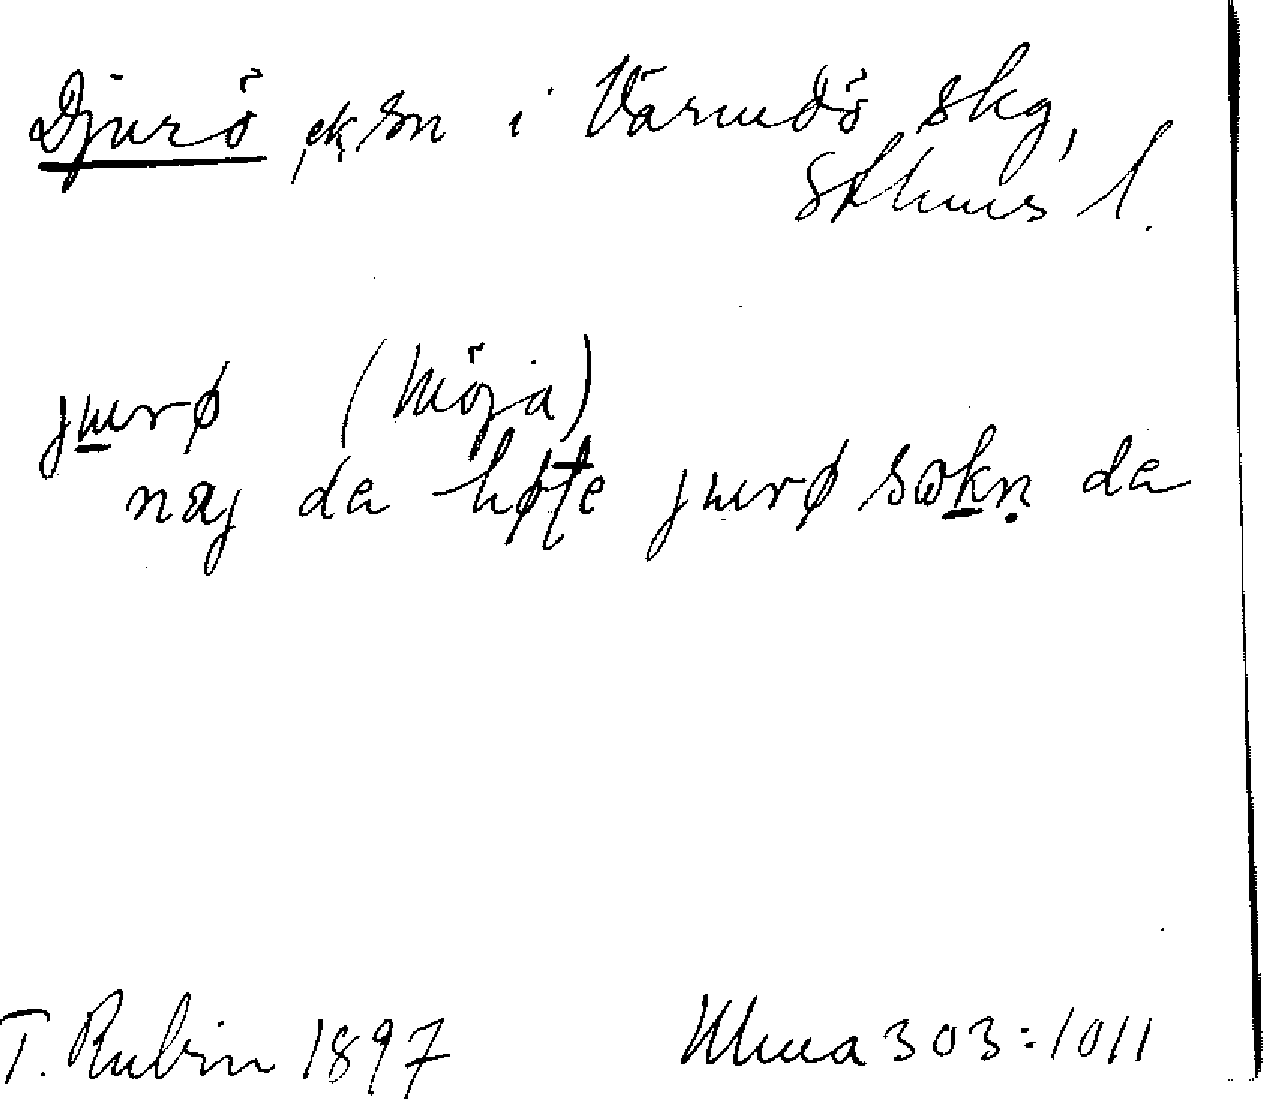 Djurö, sk, sn i Värmdö skg,
Sthms l.
jurø (Möja)
naj da høte jurø sokn da
T. Rubin 1897 Ulma 303:1011